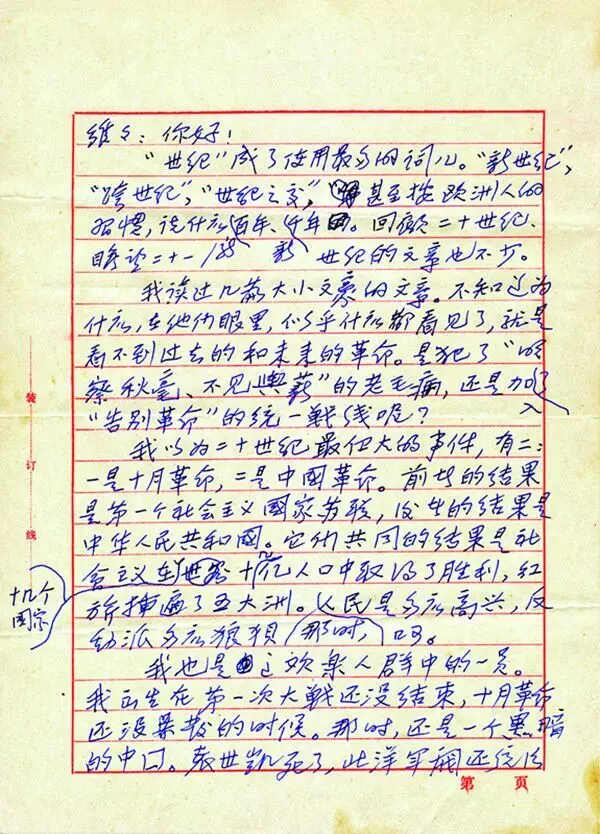 维々：你好！
"世纪"成了使用最多的词儿。"新世纪"，
"跨世纪"，"世纪之交"，甚至按欧洲人的
习惯，说什么百年、千年的。回顾二十世纪、
瞻望二十一新世纪的文章也不少。
我读过几篇大小文豪的文章。不知道为
什么，在他们眼里，似乎什么都看见了，就是
看不到过去的和未来的革命。是犯了"明
察秋毫、不见舆薪"的老毛病，还是加入了
"告别革命"的统一戦线呢？
我以为二十世纪最伟大的事件，有二：
一是十月革命，二是中國革命。前者的结果
是第一个社会主义國家苏联，后者的结果是
中华人民共和國。它们共同的结果是社
会主义在世界十几个国家十亿人口中取得了胜利，红
旗插遍了五大洲。人民是多么高兴，反
动派多么狼狈那时，啊。
我也是这欢乐人群中的一员。
我出生在第一次大戦还没结束，十月革命
还没暴发的时候。那时，还是一个黑暗
的中国。袁世凯死了，北洋军阀还统治
装
订
线
第 页